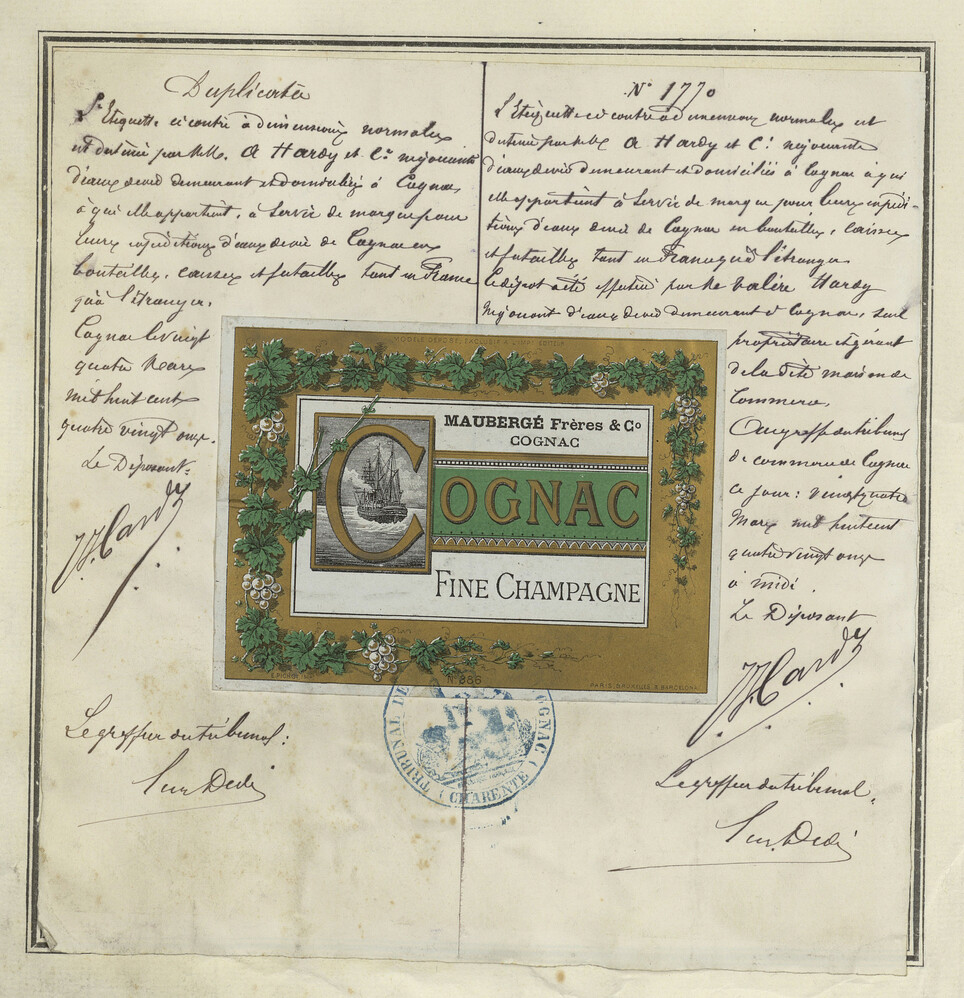 Duplicata
L'Etiquette ci contre à dimensions normales
est destinée par MM. A Hardy et Cie négociants
d'eaux de vie demeurant et domiciliés à Cognac
à qui elle appartient, à servir de marque pour
leurs expéditions d'eaux de vie de Cognac en
bouteilles, caisses et futailles tant en France
qu'à l'étranger.
Cognac le vingt
quatre Mars
mil huit cent
quatre vingt onze.
Le Déposant
V. Hardy
Le greffier du tribunal:
N° 1770
L'Etiquette ci contre à dimensions normales est
destinée par MM A Hardy et Cie négociants
d'eaux de vie demeurant et domiciliés à Cognac à qui
elle appartient à servir de marque pour leurs expédi-
tions d'eaux de vie de Cognac en bouteilles, caisses
et futailles tant en France qu'à l'étranger
Le dépôt a été effectué par Mr Valère Hardy
négociant d'eaux de vie demeurant à Cognac, seul
propriétaire et gérant
de la dite maison de
Commerce.
Au greffe du tribunal
de commerce de Cognac
ce jour: vingt quatre
Mars mil huit cent
quatre vingt onze
à midi
Le Déposant
V. Hardy
Le greffier du tribunal.
MODÈLE DÉPOSÉ
MAUBERGÉ Frères & Co
COGNAC
COGNAC
FINE CHAMPAGNE
N. 386
PARIS BORDEAUX & BARCELONA
TRIBUNAL DE COGNAC (CHARENTE)